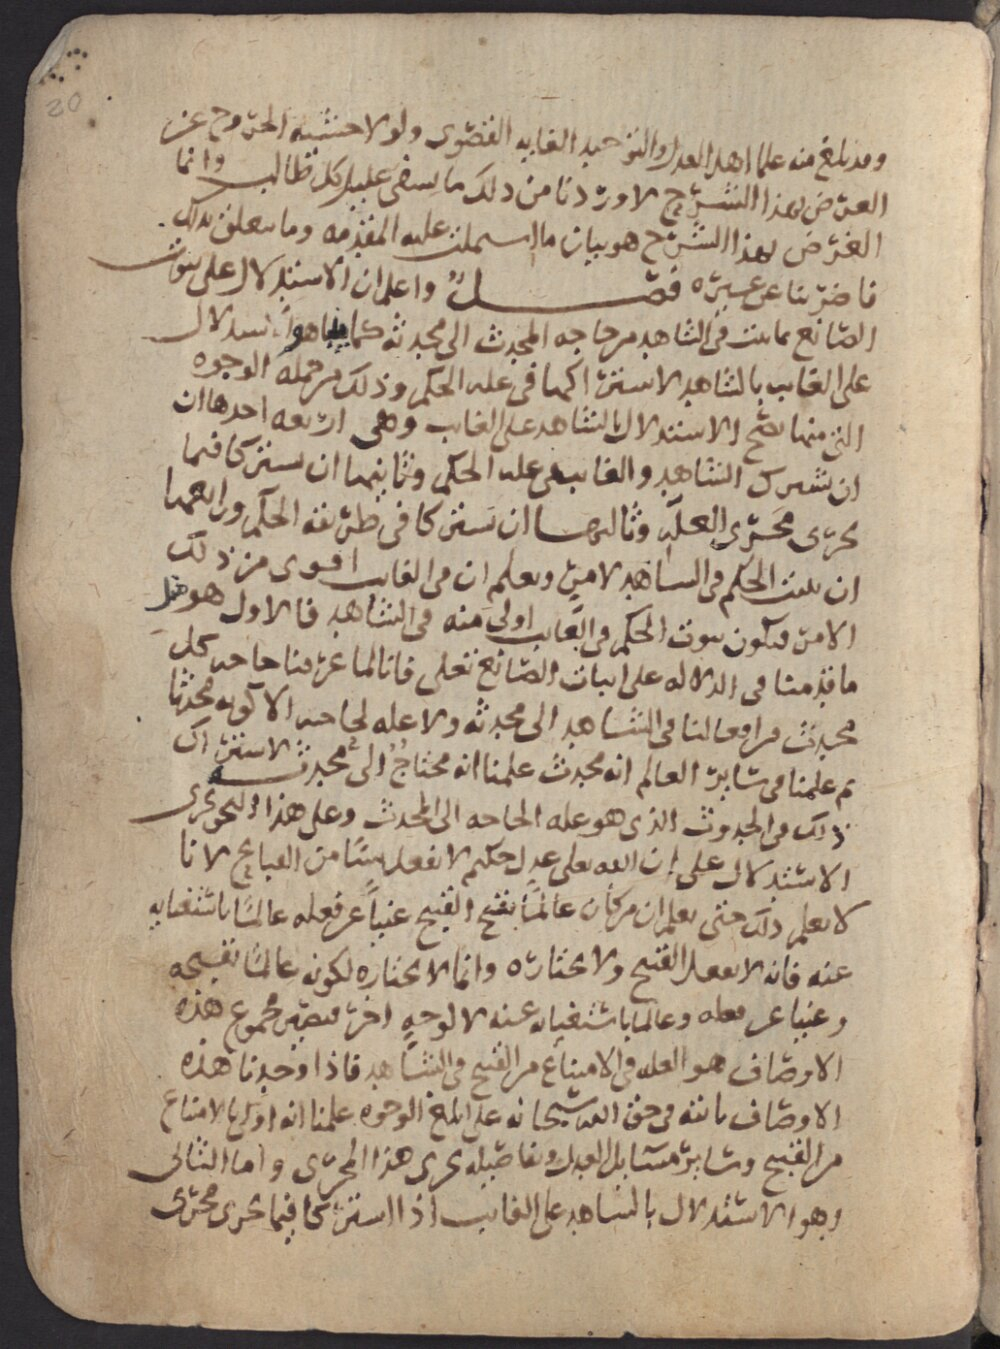 20
وقد بلغ منه علما اهل العدل والتوحيد الغايه القصوى ولولا خشية الخروج عن
الغرض بهذا الشرح لاوردنا من ذلك ما يشفى غليل كل طالب وانما
الغرض بهذا الشرح هو بيان ما اشتملت عليه المقدمه وما يتعلق بذلك
فاضربنا عن غيره فصل واعلم ان الاستدلال على ثبوت
الصانع بما يثبت فى الشاهد من حاجه المحدث الى محدثه كما هو استدلال
على الغايب بالشاهد لاشتراكهما فى عله الحكم وذلك من جمله الوجوه
التى منها يصح الاستدلال بالشاهد على الغايب وهى اربعه احدها ان
ان يشترك الشاهد والغايب فى عله الحكم وثانيها ان يشتركا فيما
يجرى مجرى العله وثالثها ان يشتركا فى طريقه الحكم ورابعها
ان يثبت الحكم فى الشاهد لامر ويعلم ان فى الغايب اقوى من ذلك
الامر فيكون ثبوت الحكم فى الغايب اولى منه فى الشاهد فالاول هو مثل
ما قدمنا فى الدلاله على اثبات الصانع تعلى فانا لما عرفنا حاجه كل
محدث من افعالنا فى الشاهد الى محدثه ولا عله لحاجته الا كونه محدثا
ثم علمنا فى ساير العالم انه محدث علمنا انه محتاج الى محدث لاشتراك
ذلك فى الحدوث الذى هو عله الحاجه الى المحدث وعلى هذا النحو يجرى
الاستدلال على ان الله تعلى عدل حكيم لا يفعل شيا من القبايح لانا
لا نعلم ذلك حتى نعلم ان من كان عالما بقبح القبيح غنيا عن فعله عالما باستغنايه
عنه فانه لا يفعل القبيح ولا يختاره وانما لا يختاره لكونه عالما بقبحه
وغنيا عن فعله وعالما باستغنايه عنه لا لوجه اخر فيصير مجموع هذه
الاوصاف هو العله فى الامتناع من القبيح فى الشاهد فاذا وجدنا هذه
الاوصاف ثابته فى حق الله سبحانه على ابلغ الوجوه علمنا انه اولى بالامتناع
من القبيح وساير مسايل العدل وتفاصيله يجرى هذا المجرى واما الثانى
وهو الاستدلال بالشاهد على الغايب اذا اشتركا فيما يجرى مجرى